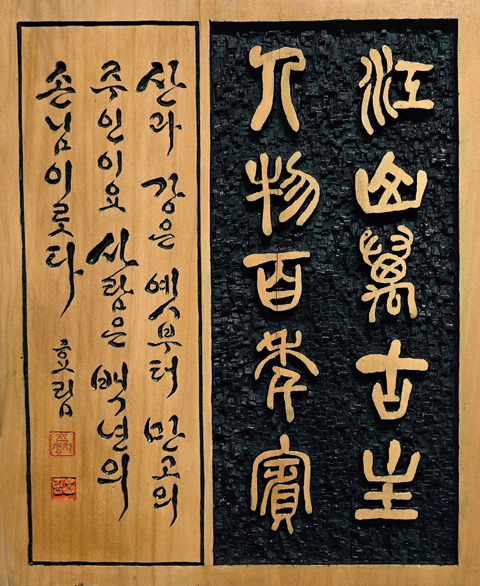 江山萬古主
人物百年賓
산과 강은 옛부터 만고의
주인이요 사람은 백년의
손님이로다 효림